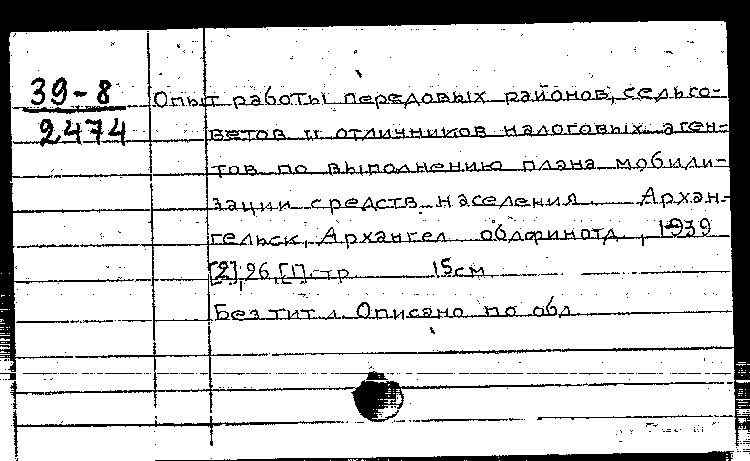 39-8
2474
Опыт работы передовых районов, сельсо-
ветов и отличников налоговых аген-
тов по выполнению плана мобили-
зации средств населения. Архан-
гельск, Архангел. облфинотд, 1939
[2], 26, [1] стр. 15см
Без тит. л. Описано по обл.